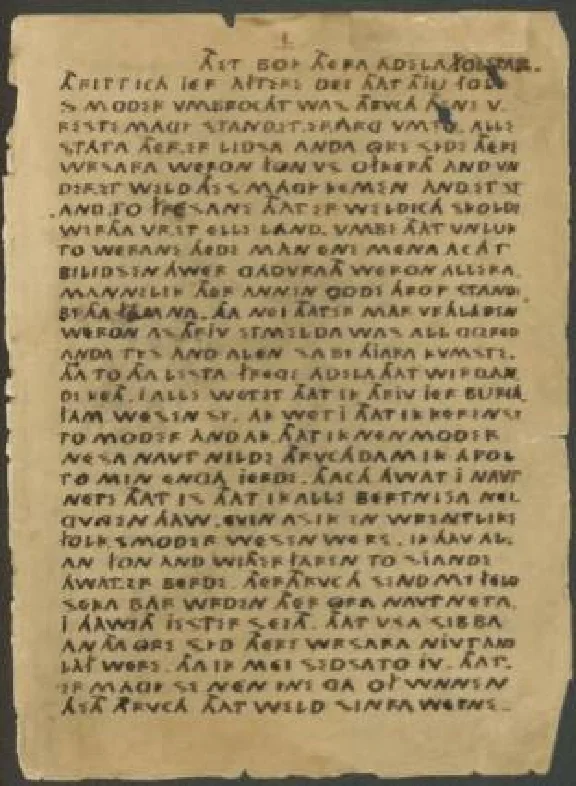 THET BOK THERA ADELA FOLSTAR.
THRITTICH JER AFTERE DEI THAT THJU FOLK
SMODER VMBROCHT WAS THRVCH THENE V
RESTE MAGY STAND ET ER ARG VM TO. ALLE
STATA THER ER LIDSA ANDA ORE SYDE THERE
WRSARA WERON FON VS OFKERTH AND VN
DER ET WELD THES MAGY KEMEN AND ET ST
AND TO FRESANE THAT ER WELDICH SKOLDE
WERTHA VR ET ELLE LAND. VMBE THAT VNLUK
TO WERANE HEDE MAN ENE MENA ACHT
BILIDSEN HWER GADVRATH WERON ALLERA
MANNELIK THER ANN EN GODE HROP STANDE
BY THA FAMNA. THA NEI THAT ER MAR VRHLAPEN
WERON AS THRJV ETMELDA WAS ALL GORED
ANDA TYS AND ALEN SA BY HJARA KVMSTE.
THA TO THA LESTA FREGE ADELA THAT WIRD AN
DE KETH. J ALLE WETET THAT IK THRJV JER BURCH
FAM WESEN SY. AK WET J THAT IK KEREN SY
TO MODER AND AK THAT IK NEN MODER
NESA NAVT NILDE THRVCHDAM IK APOL
TO MIN ENGA JERDE. THACH HWAT J NAVT
NETE THAT IS THAT IK ALLE BERTNISA NEI
GVNGEN HAW. EVIN AS IK EN WRENTLIKE
FOLKSMODER WESEN WERE. IK HAV AL
AN FON AND WITHER FAREN TO SJANDE
HWATER BERDE. THERTHRVCH SEND MY FELO
SEKA BAR WRDEN THER ORA NAVT NETA.
J HAWETH JESTER SEITH. THAT VSA SIBBA
AN THA ORE SYD THERE WRSARA NJVT AND
LAF WERE. THA IK MEI SEDSA TO JV. THAT
ER MAGY SE NEN YNE GA OF WNNEN
HETH THRVCH THAT WELD SINRA WEPNE.